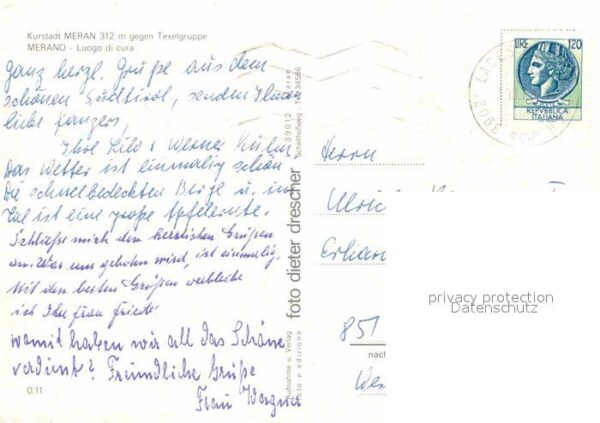 Kurstadt MERAN 312 m gegen Texelgruppe
MERANO - Luogo di cura
ganz herzl. Grüße aus dem
schönen Südtirol, senden Ihnen
liebe
Ihre Lilo u. Werner
Das Wetter ist einmalig schön
Die schneebedeckten Berge u. im
Tal ist eine große Apfelernte.
Schließe mich den herzlichen Grüßen
an. Was uns geboten wird, ist einmalig.
Mit den besten Grüßen verbleibe
ich Ihre Frau
womit haben wir all das Schöne
verdient? Freundliche Grüße
Frau Wagner
D.11
foto dieter drescher
39012 Meran
Schallhofweg
Aufnahme u. Verlag
Foto e edizione
LIRE 120
REPVBBLICA
ITALIANA
Herrn
Ulric
Erhar
851
nach
privacy protection
Datenschutz